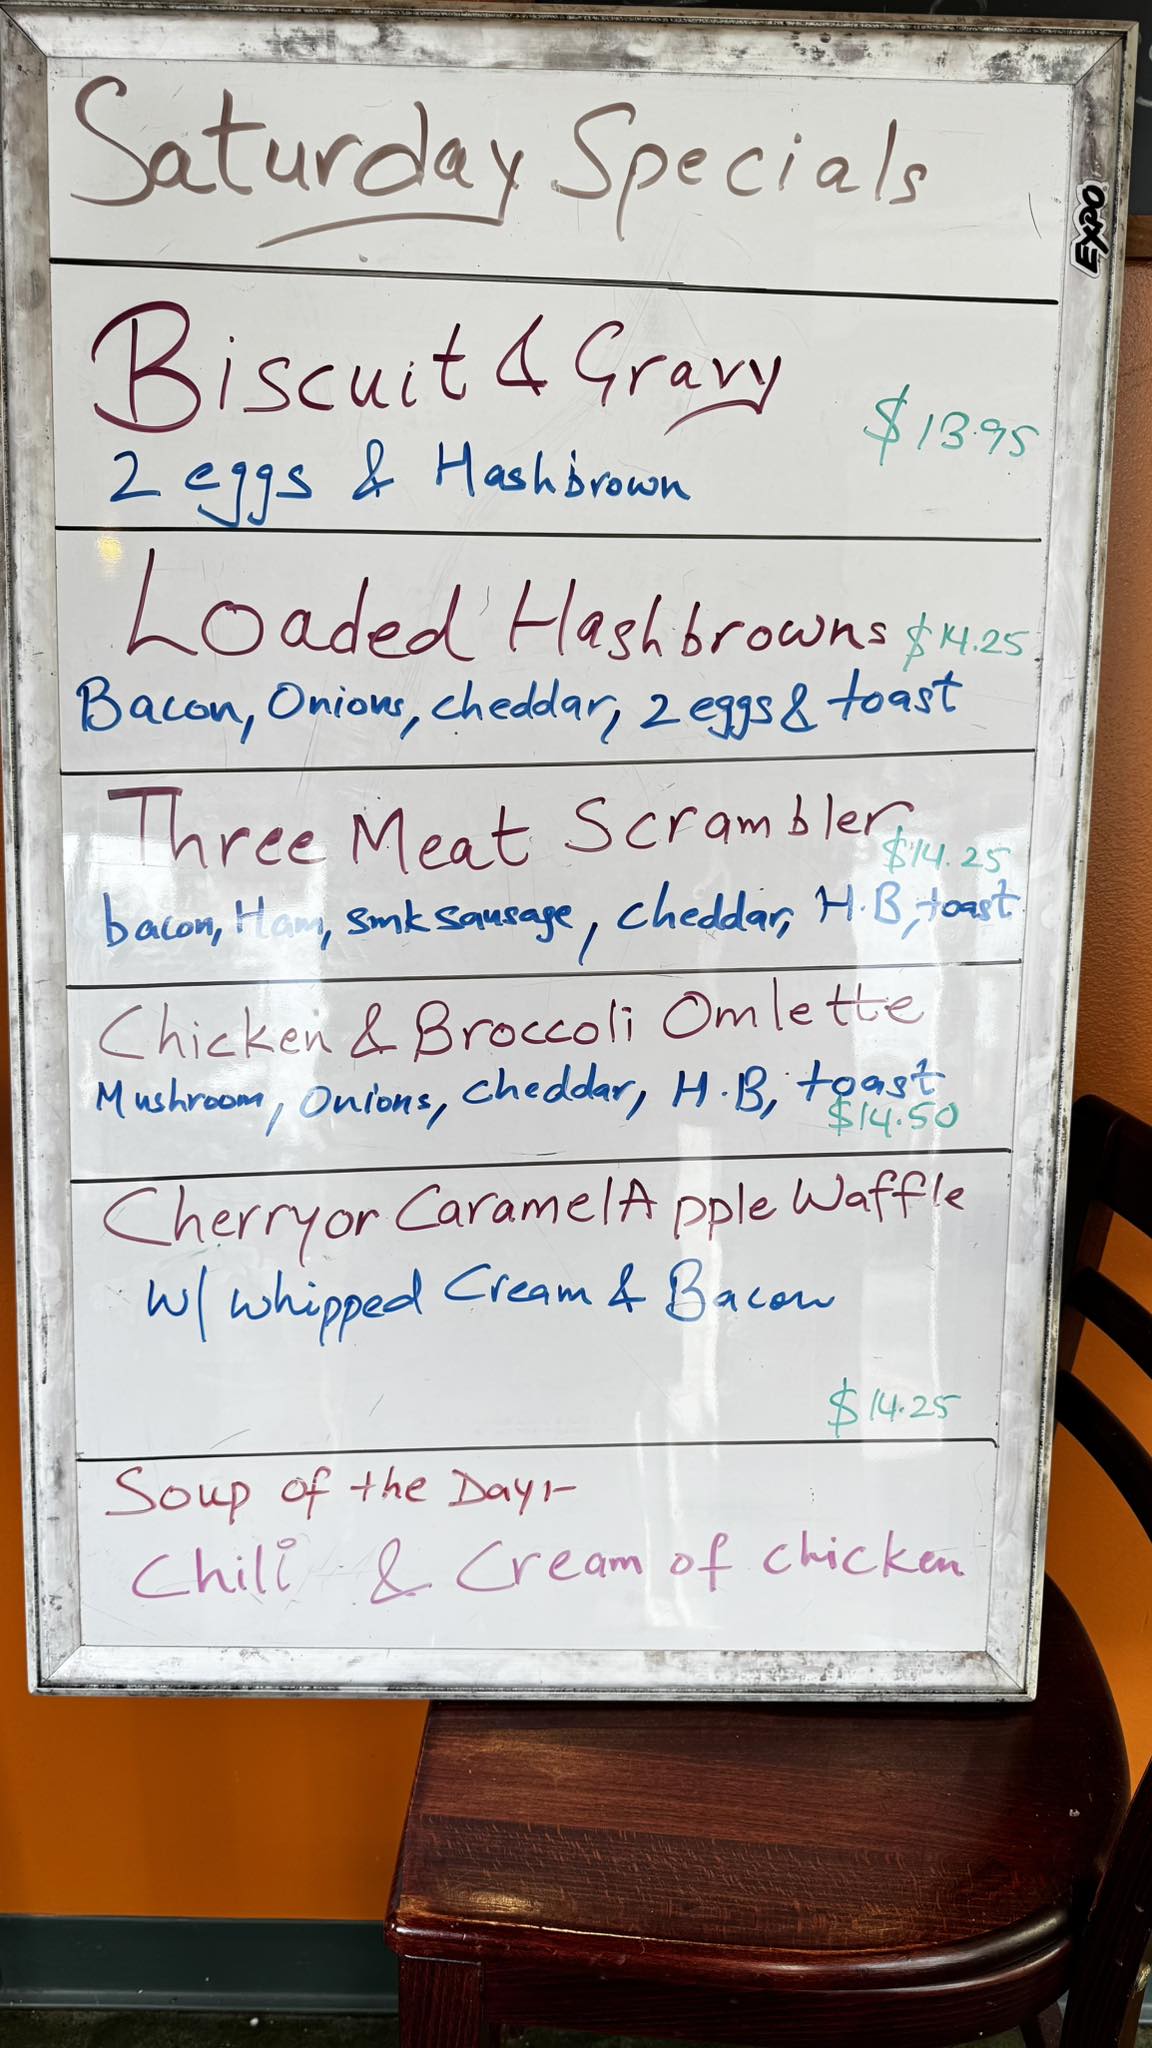 Saturday Specials
EXPO
Biscuit & Gravy
$13.95
2 eggs & Hashbrown
Loaded Hashbrowns $14.25
Bacon, Onions, cheddar, 2 eggs & toast
Three Meat Scrambler
$14.25
bacon, Ham, smk sausage, cheddar, H.B, toast
Chicken & Broccoli Omlette
Mushroom, Onions, cheddar, H.B, toast
$14.50
Cherry or Caramel Apple Waffle
W/ whipped Cream & Bacon
$14.25
Soup of the Day:-
Chili & Cream of chicken